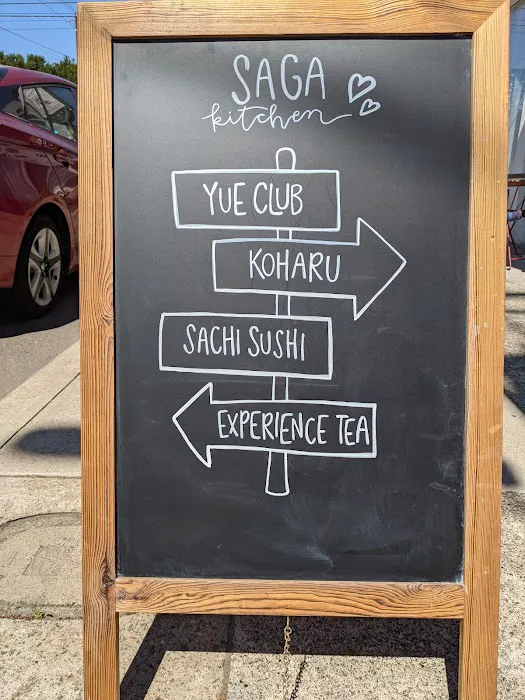 SAGA
kitchen
YUE CLUB
KOHARU
SACHI SUSHI
EXPERIENCE TEA